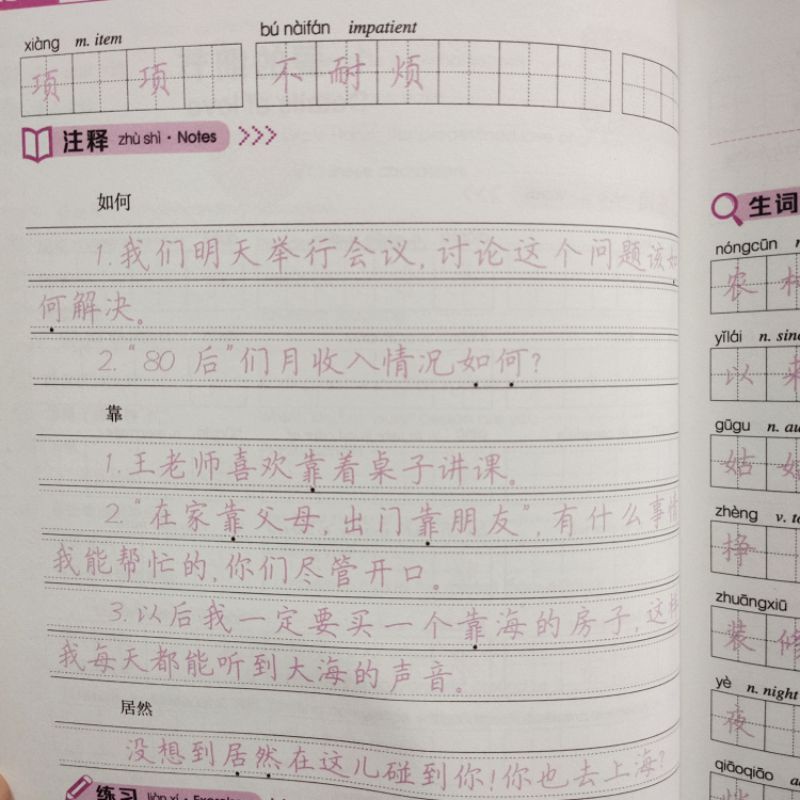 xiàng m. item
bú nàifán impatient
项 项
不耐烦
注释 zhù shì · Notes
如何
1. 我们明天举行会议,讨论这个问题该如
何解决。
2. “80 后”们月收入情况如何?
靠
1. 王老师喜欢靠着桌子讲课。
2. “在家靠父母,出门靠朋友”,有什么事情
我能帮忙的,你们尽管开口。
3. 以后我一定要买一个靠海的房子,这样
我每天都能听到大海的声音。
居然
没想到居然在这儿碰到你!你也去上海?
练习 liàn xí · Exercise
生词
nóngcūn
农村
yǐlái n. sinc
以来
gūgu n. au
姑姑
zhèng v. t
挣
zhuāngxiū
装修
yè n. night
夜
qiāoqiāo a
悄